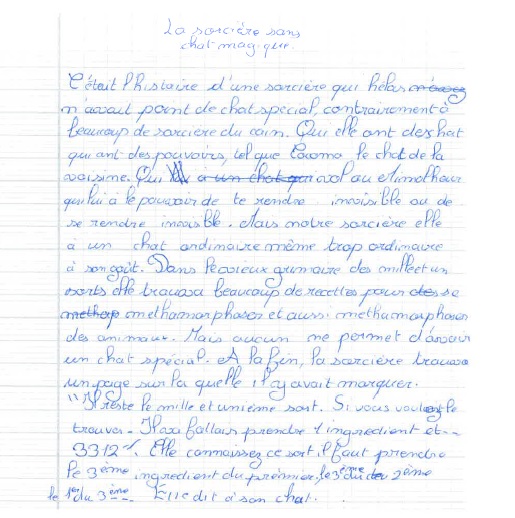 La sorcière sans
chat mag-que.
C'était l'histoire d'une sorcière qui hélas
n'avait point de chat spécial, contrairement à
beaucoup de sorcière du coin. Qui elle ont des chat
qui ont des pouvoirs, tel que le chat de la
voisine. Qui a un chat qui vol au
qui lui à le pouvoir de te rendre invisible ou de
se rendre invisible. Mais notre sorcière elle
à un chat ordinaire même trop ordinaire
à son goût. Dans le vieux grimoire des mille et un
sorts elle trouva beaucoup de recettes pour des se
methap methamorphoser et aussi methamorphoser
des animaux. Mais aucun ne permet d'avoir
un chat spécial. A la fin, la sorcière trouva
un page sur la quelle il y avait marquer.
"Il reste le mille et unième sort. Si vous voulez le
trouver. Il fallais prendre l'ingredient et--
3312". Elle connaissez ce sort il faut prendre
le 3ème ingredient du prémier, le 3ème du 2ème
le 1er du 3ème. Elle dit à son chat.